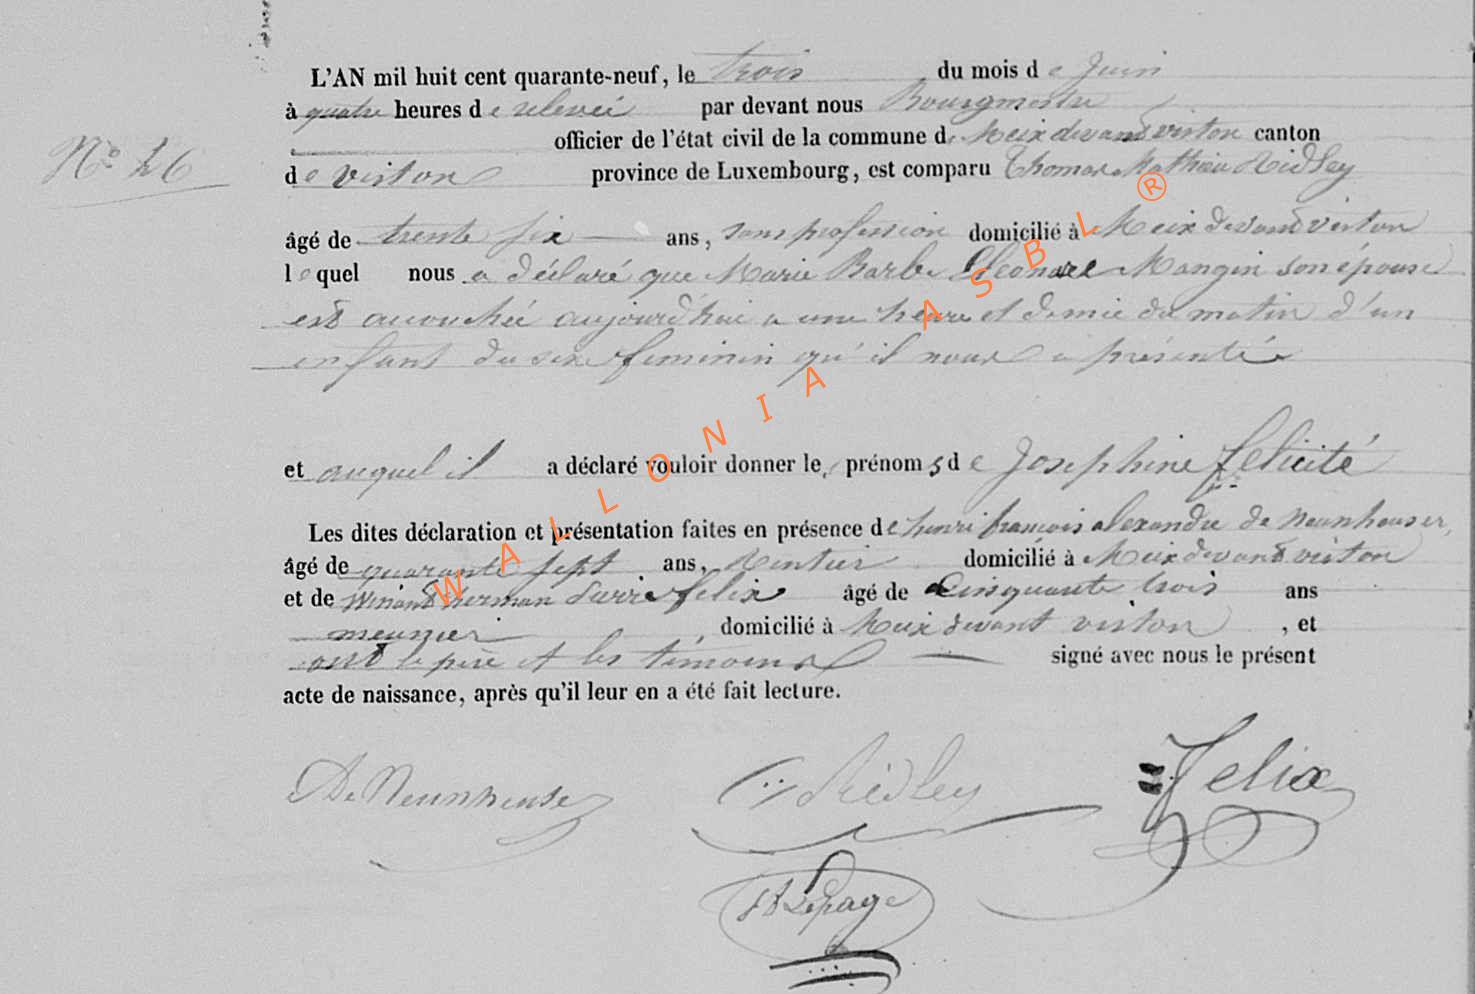 L'AN mil huit cent quarante-neuf, le trois du mois de Juin
à quatre heures de relevée par devant nous Bourgmestre
officier de l'état civil de la commune de Meix devant virton canton
N° 26
de virton province de Luxembourg, est comparu Thomas Mathieu Ridley
âgé de trente six ans, sans profession domicilié à Meix devant virton
lequel nous a déclaré que Marie Barbe Mangin son épouse
est accouchée aujourd'hui a une heure et demie du matin d'un
enfant du sexe feminin qu'il nous a présenté
et auquel il a déclaré vouloir donner les prénoms de Josephine félicité
Les dites déclaration et présentation faites en présence de henri francois alexandre de Neunheuser
âgé de quarante sept ans, Rentier domicilié à Meix devant virton
et de herman felix âgé de Cinquante trois ans
meunier domicilié à Meix devant virton , et
ont le père et les témoins signé avec nous le présent
acte de naissance, après qu'il leur en a été fait lecture.
De Neunheuse Ridley Felix
Lepage
WALLONIA ASBL ®